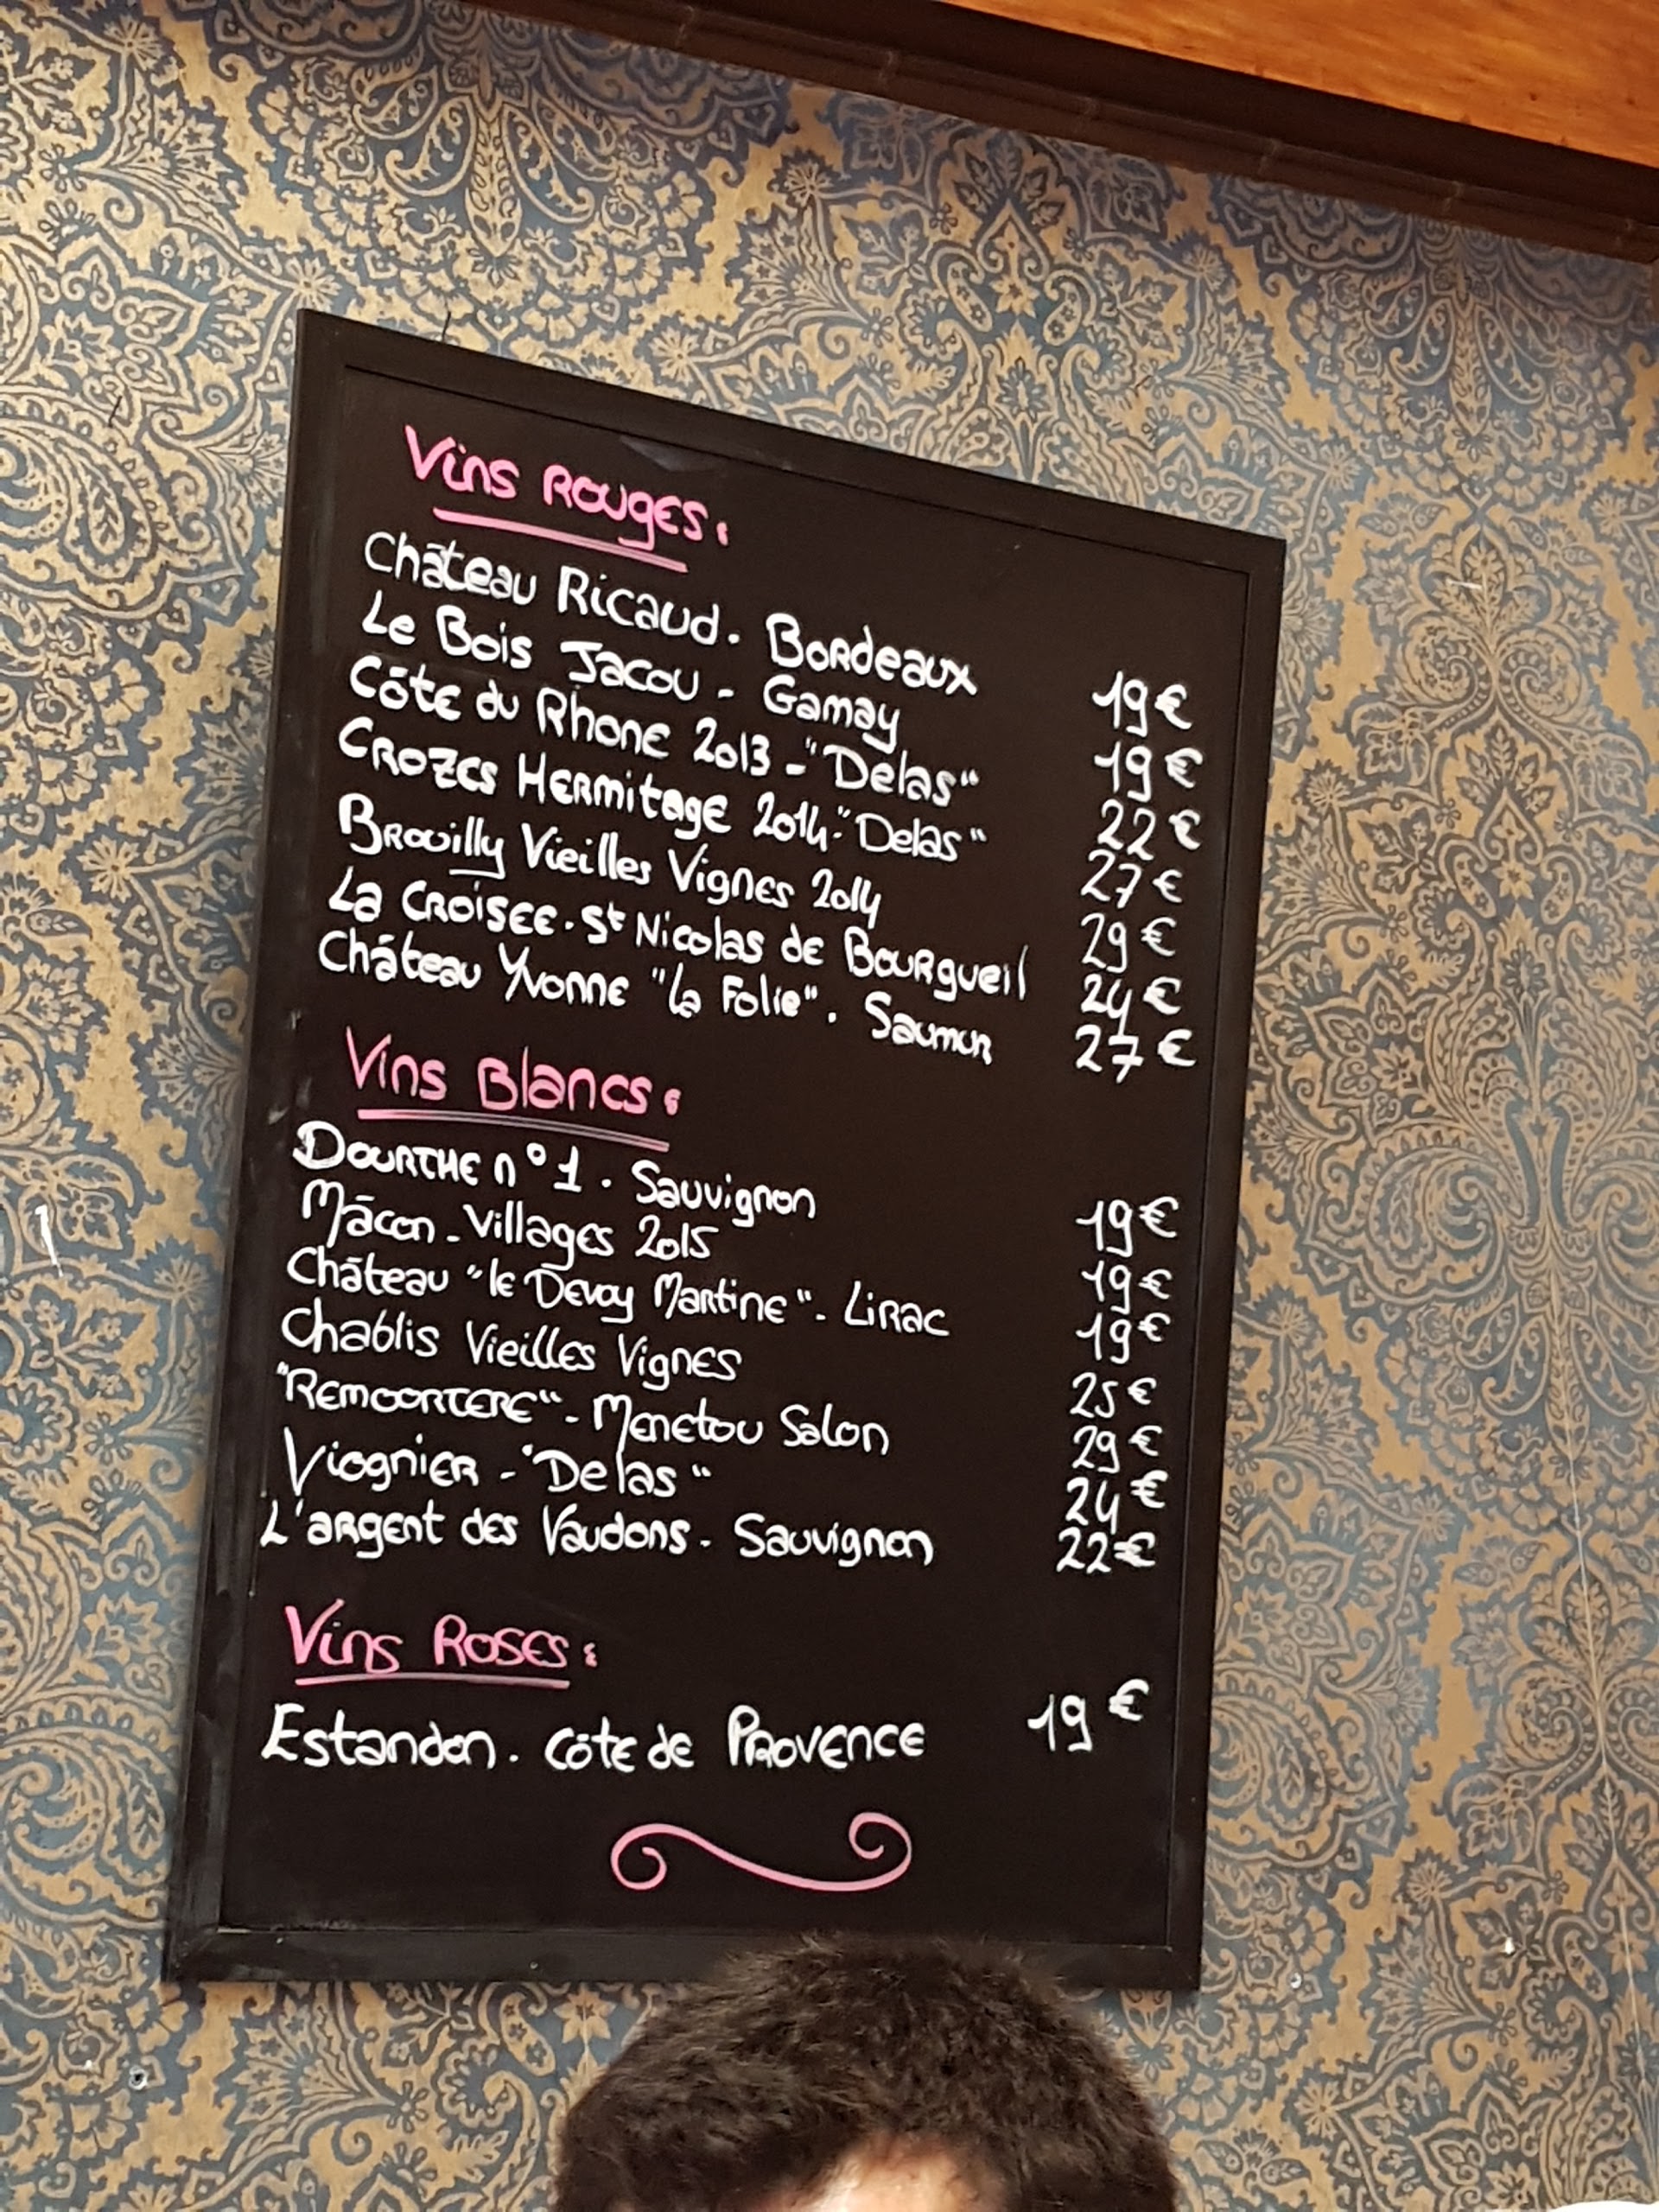 Vins Rouges:
Château Ricaud. Bordeaux 19€
Le Bois Jacou - Gamay 19€
Côte du Rhone 2013 - "Delas" 22€
Crozes Hermitage 2014 - "Delas" 27€
Brouilly Vieilles Vignes 2014 29€
La Croisee. St Nicolas de Bourgueil 24€
Château Yvonne "La Folie". Saumur 27€
Vins Blancs:
Dourthe n°1. Sauvignon 19€
Mâcon-Villages 2015 19€
Château "le Devoy Martine". Lirac 19€
Chablis Vieilles Vignes 25€
"Remoortere" - Menetou Salon 29€
Viognier - "Delas" 24€
L'argent des Vaudons. Sauvignon 22€
Vins Roses:
Estandon. Côte de Provence 19€